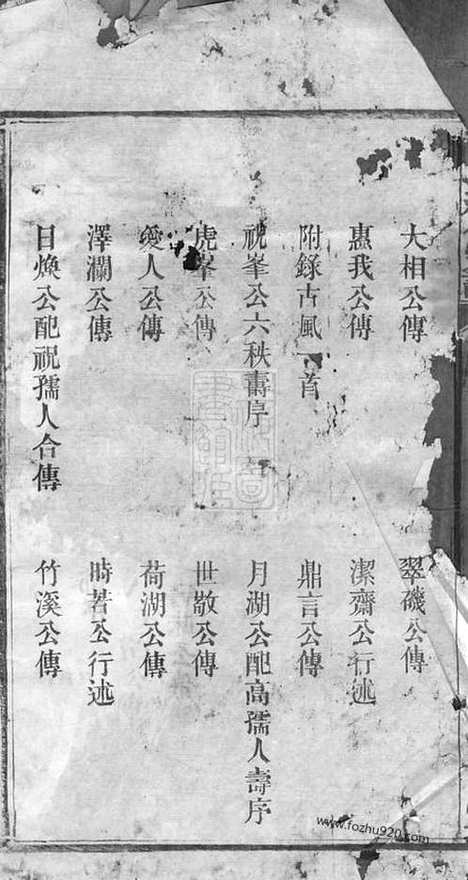 大相公傳
翠磯公傳
惠我公傳
潔齋公行述
附錄古風一首
鼎言公傳
祝峯公六秩壽序
月湖公配高孺人壽序
虎峯公傳
世敬公傳
愛人公傳
荷湖公傳
澤瀾公傳
時若公行述
日煥公配祝孺人合傳
竹溪公傳
www.fozhu920.com